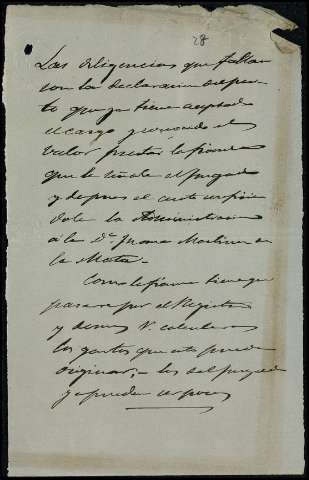 28
Las diligencias que faltan
son la declaracion del peri-
to que ya tiene aceptado
el cargo y cuando el
valor prestar la fianza
que le señale el juzgado
y despues el auto
la Administracion
á la Dª Juana Martinez de
la Mata.
Como la fianza tiene que
pasar por el Registro
y demas V. calculará
los gastos que esto puede
originar, los del juzgado
ya pueden ser pocos